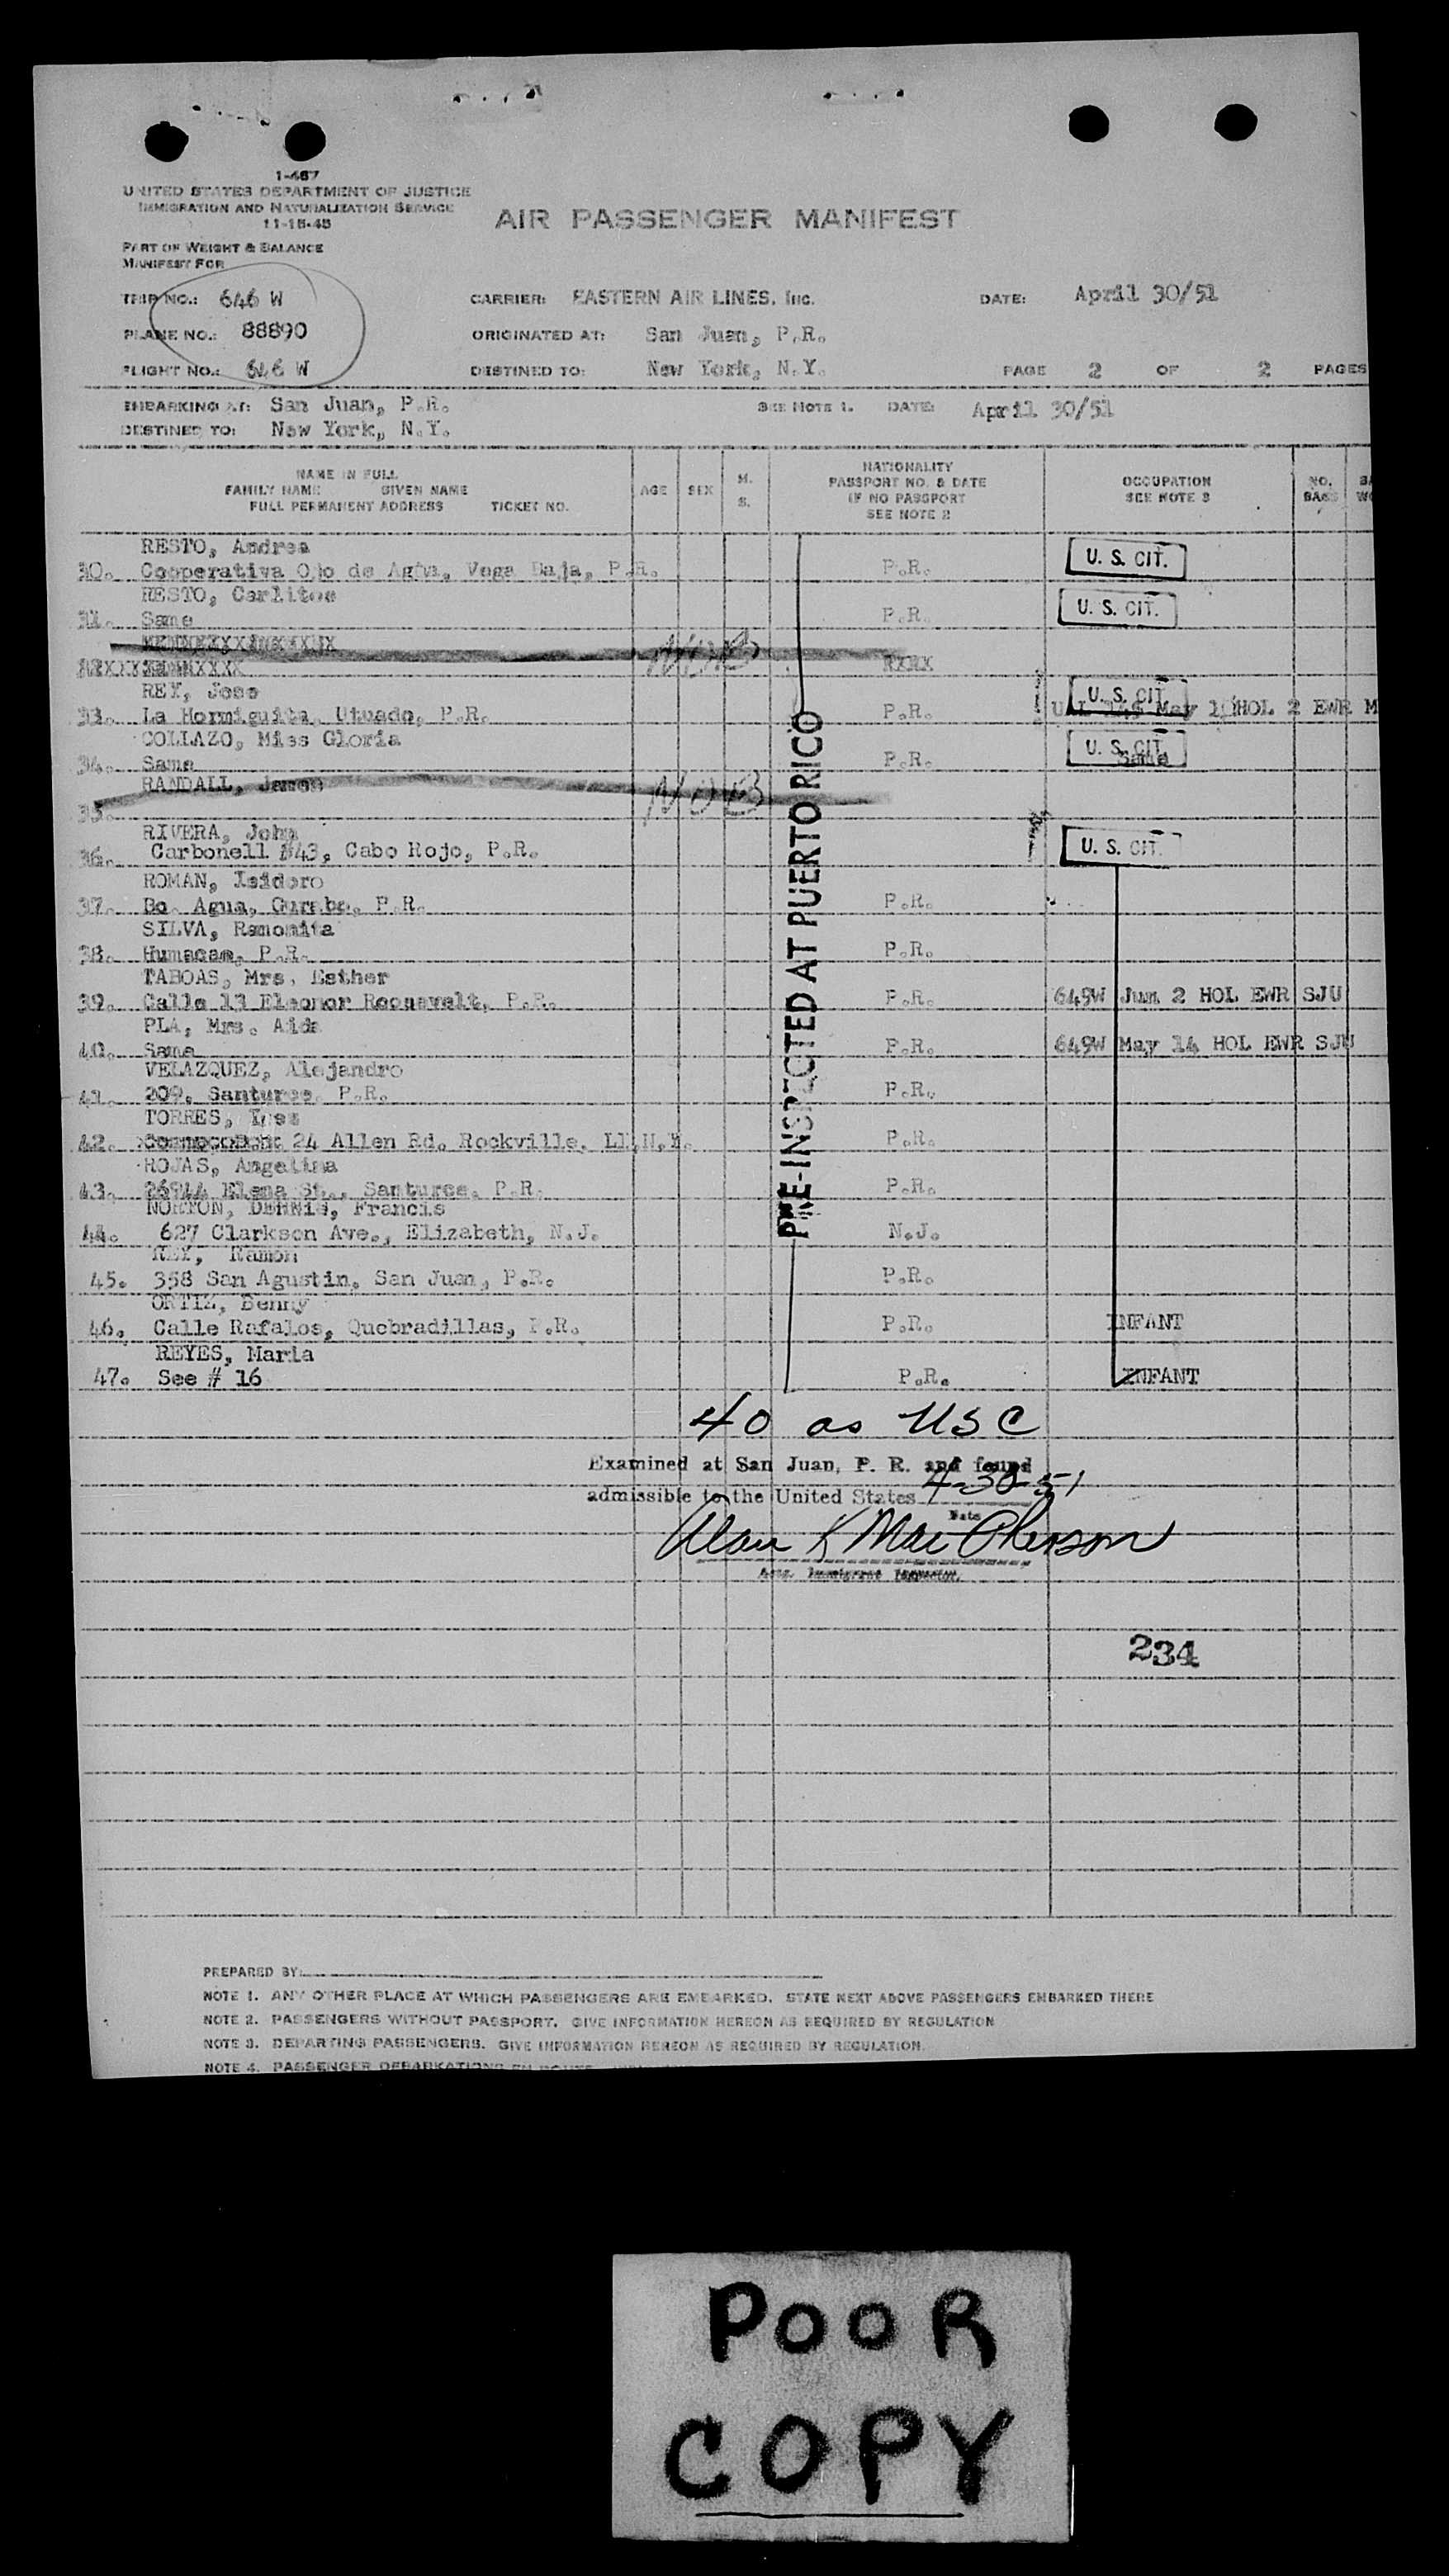 1-467
UNITED STATES DEPARTMENT OF JUSTICE
IMMIGRATION AND NATURALIZATION SERVICE
11-15-45
AIR PASSENGER MANIFEST
PART OF WEIGHT & BALANCE
MANIFEST FOR
TRIP NO.: 646 W CARRIER: EASTERN AIR LINES, INC. DATE: April 30/51
PLANE NO.: 88890 ORIGINATED AT: San Juan, P.R.
FLIGHT NO.: 646 W DESTINED TO: New York, N.Y. PAGE 2 OF 2 PAGES
EMBARKING AT: San Juan, P.R. SEE NOTE 1. DATE: April 30/51
DESTINED TO: New York, N.Y.
NAME IN FULL
FAMILY NAME GIVEN NAME
FULL PERMANENT ADDRESS TICKET NO.
AGE SEX M. S.
NATIONALITY
PASSPORT NO. & DATE
IF NO PASSPORT
SEE NOTE 2
OCCUPATION
SEE NOTE 3
NO. BAGS
RESTO, Andrea
30. Cooperativa Ojo de Agua, Vega Baja, P.R. P.R. U. S. CIT.
RESTO, Carlitos
31. Same P.R. U. S. CIT.
NOB
REY, Jose
33. La Hormiguita, Utuado, P.R. P.R. U. S. CIT. May HOL 2 EWR M
COLLAZO, Miss Gloria
34. Same P.R. U. S. CIT. Same
RANDALL, James
35. NOB
RIVERA, John
36. Carbonell #43, Cabo Rojo, P.R. U. S. CIT.
ROMAN, Isidoro
37. Bo. Agua, Gurabo, P.R. P.R.
SILVA, Ramonita
38. Humacao, P.R. P.R.
TABOAS, Mrs. Esther
39. Calle 13 Eleonor Roosevelt, P.R. P.R. 649W Jun 2 HOL EWR SJU
PLA, Mrs. Aida
40. Same P.R. 649W May 14 HOL EWR SJU
VELAZQUEZ, Alejandro
41. 209, Santurce, P.R. P.R.
TORRES, Ines
42. 24 Allen Rd. Rockville, LI,N.Y. P.R.
ROJAS, Angelina
43. Elena St., Santurce, P.R. P.R.
NORTON, DENNIS, Francis
44. 627 Clarkson Ave., Elizabeth, N.J. N.J.
REY, Ramon
45. 358 San Agustin, San Juan, P.R. P.R.
ORTIZ, Benny
46. Calle Rafalos, Quebradillas, P.R. P.R. INFANT
REYES, Maria
47. See # 16 P.R. INFANT
PRE-INSPECTED AT PUERTO RICO
40 as USC
Examined at San Juan, P. R. and found
admissible to the United States 4-30-51
Date
Alan K MacPherson
Immigrant Inspector.
234
PREPARED BY:
NOTE 1. ANY OTHER PLACE AT WHICH PASSENGERS ARE EMBARKED. STATE NEXT ABOVE PASSENGERS EMBARKED THERE
NOTE 2. PASSENGERS WITHOUT PASSPORT. GIVE INFORMATION HEREON AS REQUIRED BY REGULATION
NOTE 3. DEPARTING PASSENGERS. GIVE INFORMATION HEREON AS REQUIRED BY REGULATION.
NOTE 4. PASSENGER DEBARKATIONS EN ROUTE
POOR
COPY